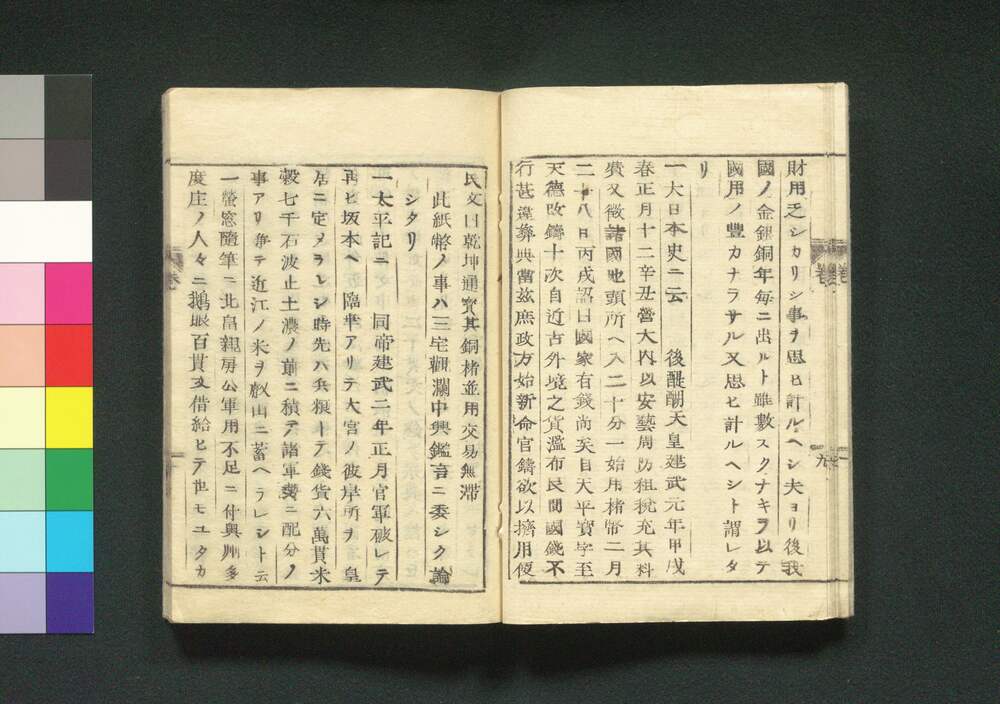 財用乏シカリシ事ヲ思ヒ計ルヘシ夫ヨリ後我
國ノ金銀銅年毎ニ出ルト雖數スクナキヲ以テ
國用ノ豐カナラサル又思ヒ計ルヘシト謂レタ
リ
一大日本史ニ云 後醍醐天皇建武元年甲戌
春正月十二辛丑營大内以安藝周防租税充其料
費又徴諸國地頭所ヘ入二十分一始用楮幣二月
二十八日丙戌詔曰國家有錢尚矣自天平寳字至
天德改鑄十次自近古外境之貨濫布民間國錢不
行甚違彝典當茲庶政方始新命官鑄欲以擠用俊
民文曰乾坤通寳其銅楮並用交易無滞
此紙幣ノ事ハ三宅觀瀾中興鑑言ニ委シク論
シタリ
一太平記ニ 同帝建武二年正月官軍破レテ
再ヒ坂本ヘ 臨幸アリテ大宮ノ彼岸所ヲ 皇
居ニ定メラレシ時先ハ兵粮トテ錢貨六萬貫米
穀七千石波止土濃ノ前ニ積テ諸軍勢ニ配分ノ
事アリ爭テ近江ノ米ヲ叡山ニ蓄ヘラレシト云
一螢窓隨筆ニ北畠親房公軍用不足ニ付奥州多
度庄ノ人々ニ鵝眼百貫文借給ヒテ世モユタカ